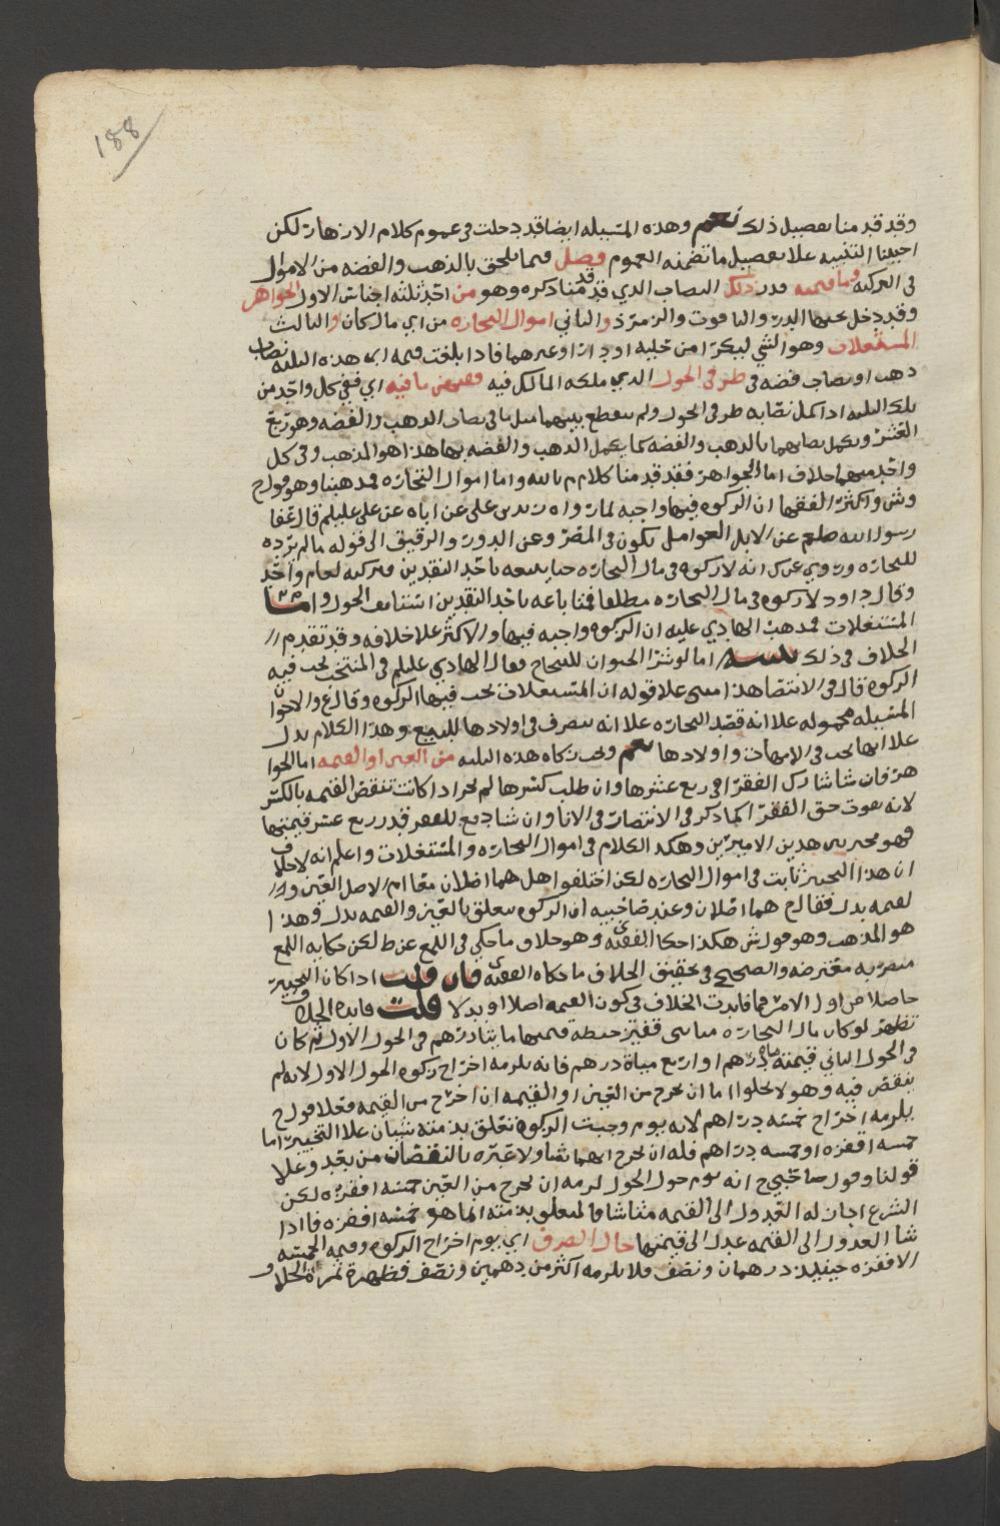 188
وقد قدمنا تفصيل ذلك نعم وهذه المسيله ايضا قد دخلت في عموم كلام الازهار لكن
احببنا التنبيه علا تفصيل ما تضمنه العموم فصل فيما يلحق بالذهب والفضه من الاموال
في التزكيه وما قيمته قدر ذلك النصاب الذي قد قدمنا ذكره وهو من احد ثلثه اجناس الاول الجواهر
وقد دخل تحتها الدر والياقوت والزمرذ والثاني اموال التجاره من اي مال كان والثالث
المستغلات وهو الشي ليكرا من حليه او دار او غيرهما فاذا بلغت قيمه اي هذه الثلثه نصاب
ذهب او نصاب فضه في طرفي الحول الذي ملكه المالك فيه ففيهن ما فيه اي ففي كل واحد من
تلك الثلثه اذا كمل نصابه طرفي الحول ولم ينقطع بينهما مثل ما في نصاب الذهب والفضه وهو ربع
العشر ويكمل نصابهما بالذهب والفضه كما يكمل الذهب والفضه بها هذا هو المذهب وفي كل
واحد منهما خلاف اما الجواهر فقد قدمنا كلام م بالله واما اموال التجاره فمذهبنا وهو قول ح
وش واكثر الفقها ان الزكوه فيها واجبه لما رواه زيد بن علي عن اباه عن علي عليلم قال عفا
رسول الله صلعم عن الابل العوامل تكون في المصر وعن الدور والرقيق الى قوله ما لم يرد به
للتجاره وروي عن ك انه لا زكوه في مال التجاره حتا يبيعه باحد النقدين فيزكيه لعام واحد
وقال داود لا زكوه في مال التجاره مطلقا فمتا باعه باحد النقدين استانف الحول واما
المستغلات فمذهب الهادي عليه ان الزكوه واجبه فيها والاكثر علا خلافه وقد تقدم
الخلاف في ذلك تنبيه اما لو شرا الحيوان للنتاج فقال الهادي عليلم في المنتخب تجب فيه
الزكوه قال في الانتصار هذا مبني علا قوله ان المستغلات تجب فيها الزكوه وقال ع والاخوان
المسيله محموله علا انه قصد التجاره علا انه يتصرف في اولادها للبيع وهذا الكلام يدل
علا انها تجب في الامهات واولادها نعم وتجب زكاه هذه الثلثه من العين او القيمه اما الجوا
هر فان شا شارك الفقرا في ربع عشرها وان طلب كسرها لم يجز اذا كانت تنقص القيمه بالكسر
لانه يفوت حق الفقرا كما ذكر في الانتصار في الانا وان شا دفع للفقير قدر ربع عشر قيمتها
فهو مخير بين هذين الامرين وهكذا الكلام في اموال التجاره والمستغلات واعلم انه لا خلاف
ان هذا التخيير ثابت في اموال التجاره لكن اختلفوا هل هما اصلان معا ام الاصل العين وا
لقيمه بدل فقال م هما اصلان وعند صاحبيه ان الزكوه تتعلق بالعين والقيمه بدل وهذا
هو المذهب وهو قول ش هكذا حكا الفقيه ى وهو خلاف ما حكي في اللمع عن ط لكن حكايه اللمع
معترضه والصحيح في تحقيق الخلاف ما حكاه الفقيه ى فان قلت اذا كان التخيير
حاصلا من اول الامر فما فايدت الخلاف في كون القيمه اصلا او بدلا قلت فايده الخلاف
تظهر لو كان مال التجاره مياتي قفيز حنطه قيمتها مايتا درهم في الحول الاول ثم كان
في الحول الثاني قيمته مايه درهم او اربع مياة درهم فانه يلزمه اخراج زكوه الحول الاول لانه لم
ينقص فيه وهو لا يخلوا اما ان يخرج من العين او القيمه ان اخرج من القيمه فعلا قول ح
يلزمه اخراج خمسه دراهم لانه يوم وجبت الزكوه تتعلق بذمته شيان علا التخيير اما
خمسه اقفزه او خمسه دراهم فله ان يخرج ايهما شا ولا عبره بالنقصان من بعد وعلا
قولنا وقول صاحبي ح انه يوم حول الحول لزمه ان يخرج من العين خمسه اقفزه لكن
الشرع اجاز له العدول الى القيمه متا شا فالمتعلق بذمته انما هو خمسه اقفزه فاذا
شا العدول الى القيمه عدل الى قيمتها حال الصرف اي يوم اخراج الزكوه وقيمه الخمسه
الاقفزه حينيذ درهمان ونصف فلا يلزمه اكثر من درهمين ونصف فظهرة ثمرة الخلاف